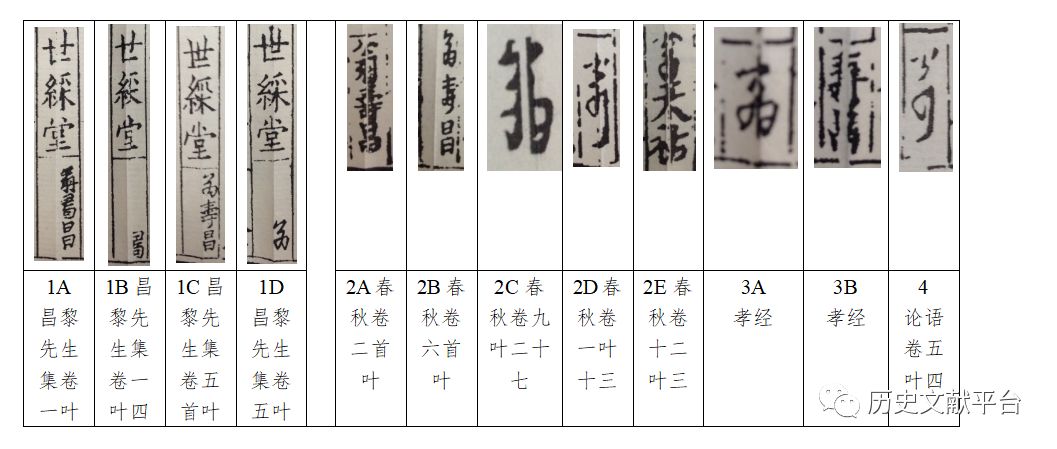 世綵堂
翁壽昌
世綵堂
世綵堂
翁寿昌
世綵堂
翁
翁寿昌
1A
昌黎
先生
集卷
一叶
1B 昌
黎先
生集
卷一
叶四
1C 昌
黎先
生集
卷五
首叶
1D
昌黎
先生
集卷
五叶
2A 春
秋卷
二首
叶
2B 春
秋卷
六首
叶
2C 春
秋卷九
叶二十
七
2D 春
秋卷
一叶
十三
2E 春
秋卷
十二
叶三
3A
孝经
3B
孝经
4
论语
卷五
叶四
历史文献平台